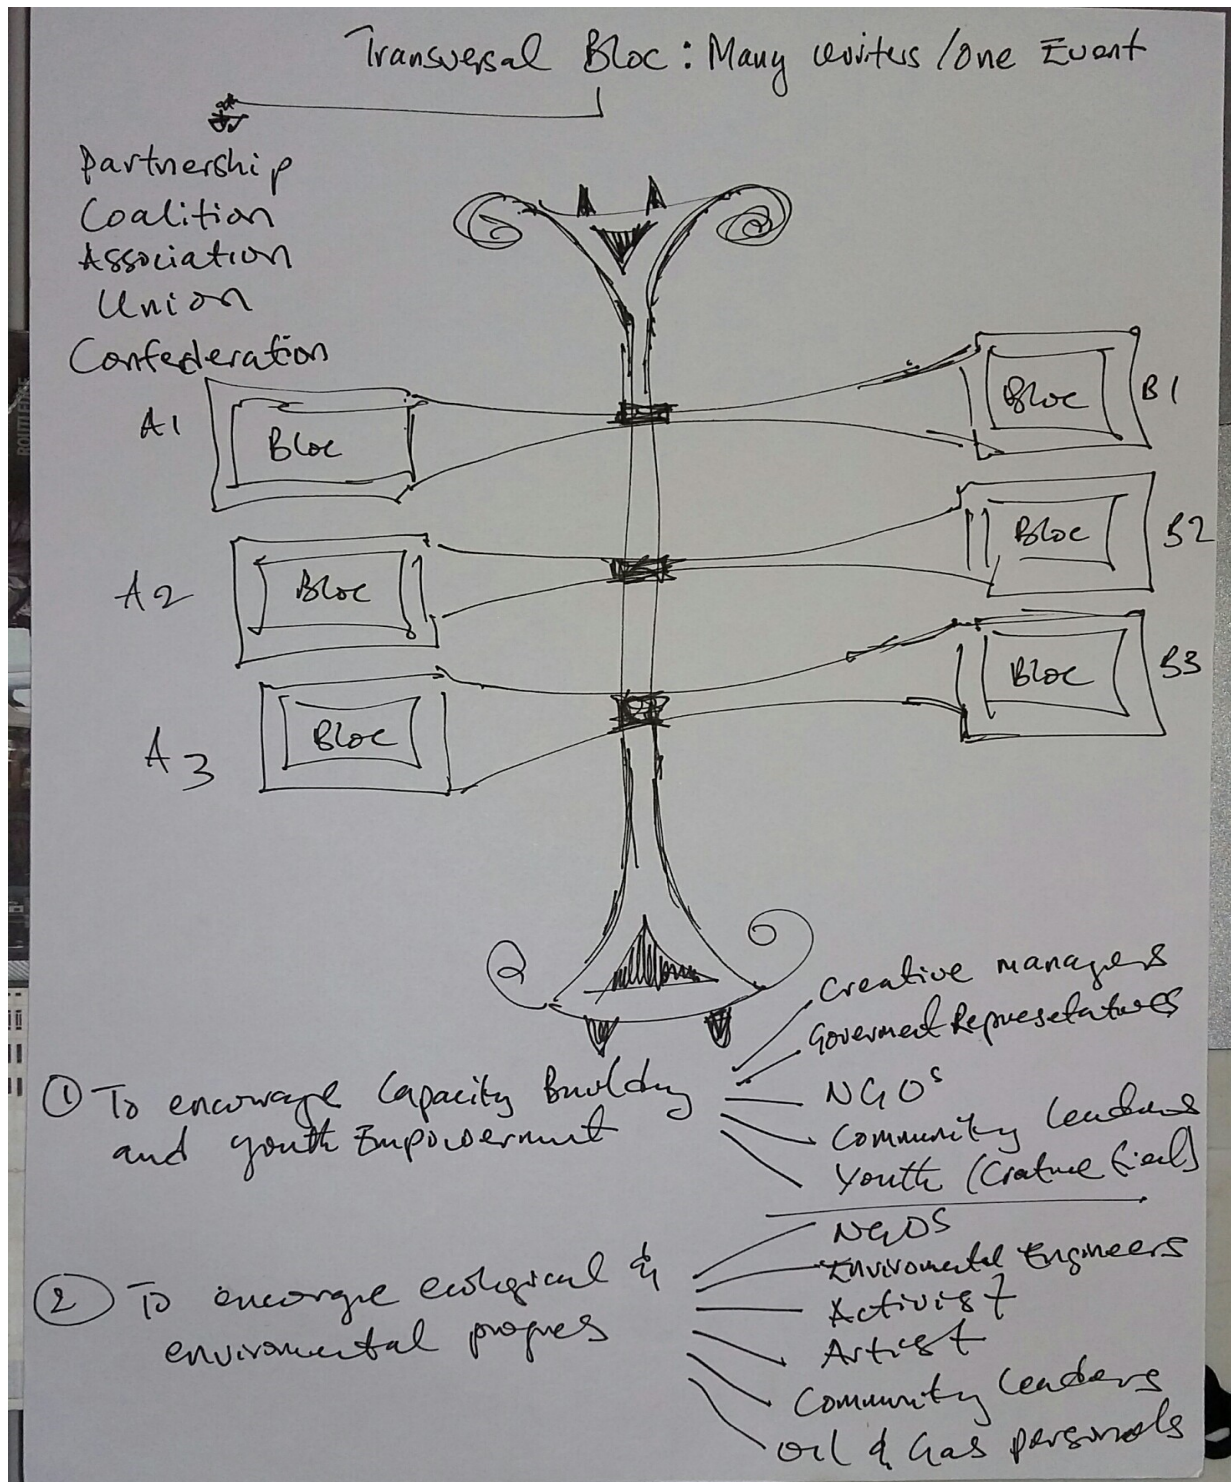 Transversal Bloc : Many writers / One Event
Partnership
Coalition
Association
Union
Confederation
A1
Bloc
Bloc
B1
A2
Bloc
Bloc
B2
A3
Bloc
Bloc
B3
① To encourage Capacity Building
and youth Empowerment
Creative managers
Goverment Representatives
NGOs
Community leaders
Youth (Creative field)
② To encourge ecological &
enviromental progres
NGOS
Enviromental Engineers
Activist
Artist
Community leaders
Oil & Gas personals